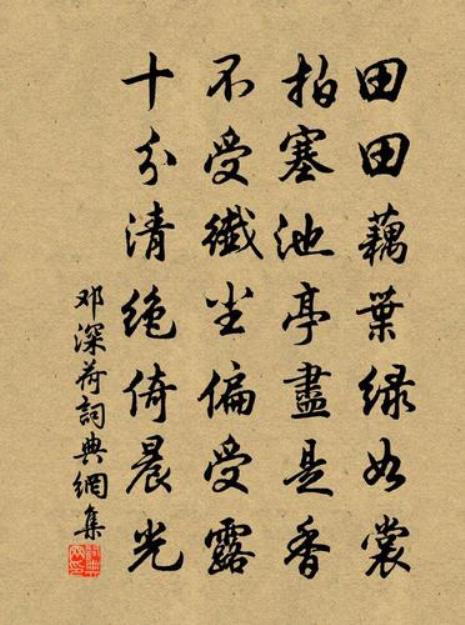 田田藕葉绿如裳
拍塞池亭盡是香
不受纖尘偏受露
十分清絶倚晨光
邓深荷詞典網集